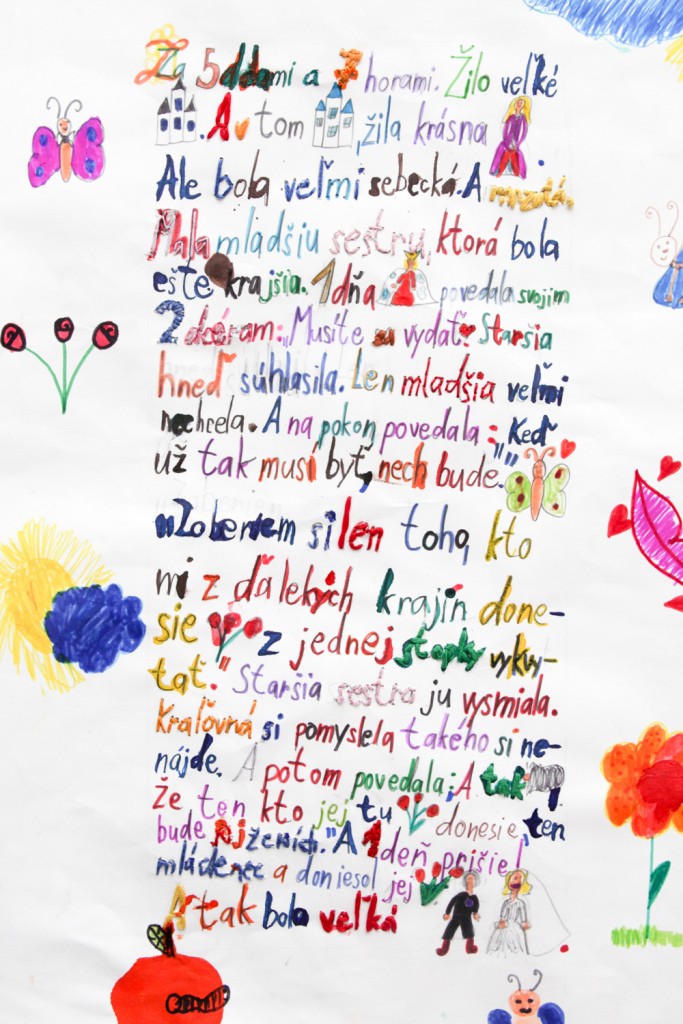 Za 5 a 7 horami. Žilo veľké
. A v tom , žila krásna
Ale bola veľmi sebecká. A
Mala mladšiu sestru, ktorá bola
ešte krajšia. 1 dňa povedala svojim
2 dcéram: „Musíte sa vydať. Staršia
hneď súhlasila. Len mladšia veľmi
nechcela. A na pokon povedala: „Keď
už tak musí byť, nech bude."
„Zoberiem si len toho, kto
mi z ďalekých krajín done-
sie z jednej stopky vykvy-
tať." Staršia sestra ju vysmiala.
Kraľovná si pomyslela takého si ne-
nájde. A potom povedala: A tak
že ten kto jej tu donesie, ten
bude jej ženích." A 1 deň prišiel
mládenec a doniesol jej
A tak bola veľká